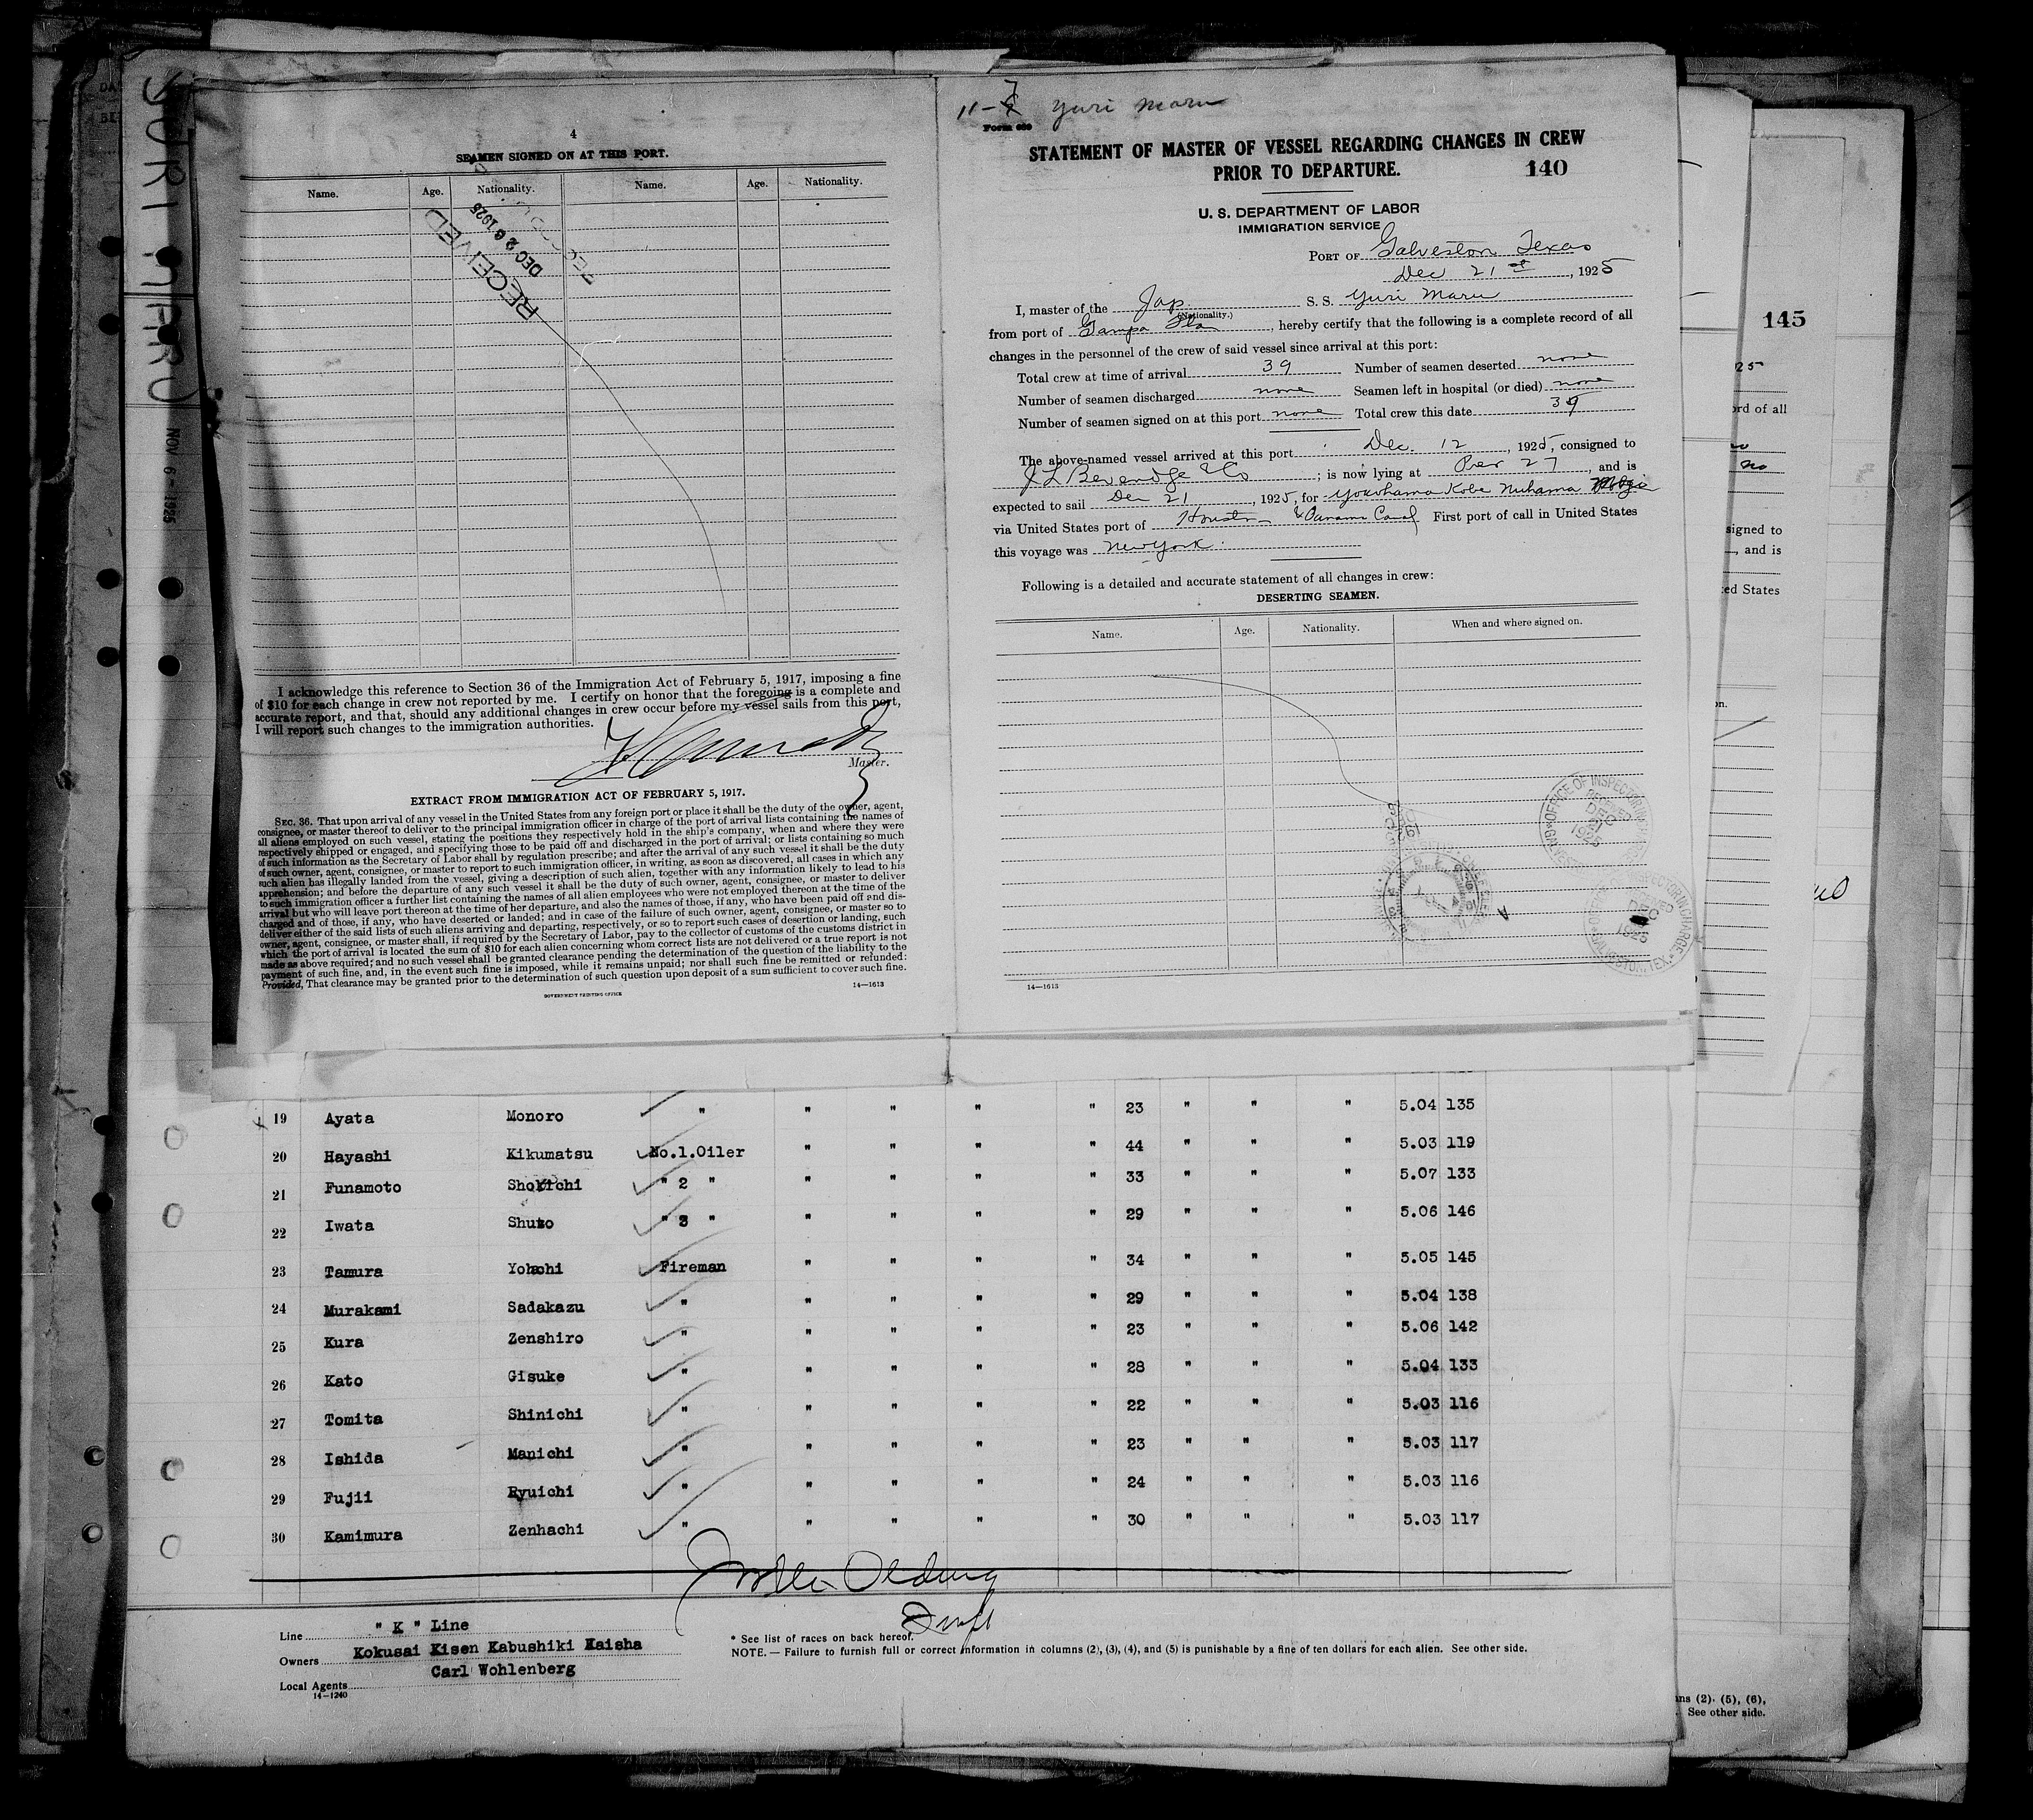 YURI MARU
NOV 6 - 1925
4
SEAMEN SIGNED ON AT THIS PORT.
Name. Age. Nationality. Name. Age. Nationality.
RECEIVED
DEC 26 1925
I acknowledge this reference to Section 36 of the Immigration Act of February 5, 1917, imposing a fine
of $10 for each change in crew not reported by me. I certify on honor that the foregoing is a complete and
accurate report, and that, should any additional changes in crew occur before my vessel sails from this port,
I will report such changes to the immigration authorities.
Master.
EXTRACT FROM IMMIGRATION ACT OF FEBRUARY 5, 1917.
SEC. 36. That upon arrival of any vessel in the United States from any foreign port or place it shall be the duty of the owner, agent,
consignee, or master thereof to deliver to the principal immigration officer in charge of the port of arrival lists containing the names of
all aliens employed on such vessel, stating the positions they respectively hold in the ship's company, when and where they were
respectively shipped or engaged, and specifying those to be paid off and discharged in the port of arrival; or lists containing so much
of such information as the Secretary of Labor shall by regulation prescribe; and after the arrival of any such vessel it shall be the duty
of such owner, agent, consignee, or master to report to such immigration officer, in writing, as soon as discovered, all cases in which any
such alien has illegally landed from the vessel, giving a description of such alien, together with any information likely to lead to his
apprehension; and before the departure of any such vessel it shall be the duty of such owner, agent, consignee, or master to deliver
to such immigration officer a further list containing the names of all alien employees who were not employed thereon at the time of the
arrival but who will leave port thereon at the time of her departure, and also the names of those, if any, who have been paid off and dis-
charged and of those, if any, who have deserted or landed; and in case of the failure of such owner, agent, consignee, or master so to
deliver either of the said lists of such aliens arriving and departing, respectively, or so to report such cases of desertion or landing, such
owner, agent, consignee, or master shall, if required by the Secretary of Labor, pay to the collector of customs of the customs district in
which the port of arrival is located the sum of $10 for each alien concerning whom correct lists are not delivered or a true report is not
made as above required; and no such vessel shall be granted clearance pending the determination of the question of the liability to the
payment of such fine, and, in the event such fine is imposed, while it remains unpaid; nor shall such fine be remitted or refunded:
Provided, That clearance may be granted prior to the determination of such question upon deposit of a sum sufficient to cover such fine.
GOVERNMENT PRINTING OFFICE 14—1613
11-7 Yuri Maru
Form 689
STATEMENT OF MASTER OF VESSEL REGARDING CHANGES IN CREW
PRIOR TO DEPARTURE. 140
U. S. DEPARTMENT OF LABOR
IMMIGRATION SERVICE
PORT OF Galveston Texas
Dec 21st, 1925
I, master of the Jap S. S. Yuri Maru
(Nationality.)
from port of Tampa Fla, hereby certify that the following is a complete record of all
changes in the personnel of the crew of said vessel since arrival at this port:
Total crew at time of arrival 39 Number of seamen deserted none
Number of seamen discharged none Seamen left in hospital (or died) none
Number of seamen signed on at this port none Total crew this date 39
The above-named vessel arrived at this port Dec. 12, 1925, consigned to
J L Beveridge & Co; is now lying at Pier 27, and is
expected to sail Dec 21, 1925, for Yokohama Kobe
via United States port of Houston & Panama Canal First port of call in United States
this voyage was New York.
Following is a detailed and accurate statement of all changes in crew:
DESERTING SEAMEN.
Name. Age. Nationality. When and where signed on.
OFFICE OF INSPECTOR IN CHARGE
RECEIVED
DEC
21
1925
OFFICE OF INSPECTOR IN CHARGE
RECEIVED
DEC
1925
GALVESTON, TEX.
14—1613
145
25
rd of all
no
signed to
, and is
ed States
on.
19 Ayata Monoro " " " " " 23 " " " 5.04 135
20 Hayashi Kikumatsu No.1.Oiler " " " " 44 " " " 5.03 119
21 Funamoto Shokichi " 2 " " " " " 33 " " " 5.07 133
22 Iwata Shuzo " 3 " " " " " 29 " " " 5.06 146
23 Tamura Yohachi Fireman " " " " 34 " " " 5.05 145
24 Murakami Sadakazu " " " " " 29 " " " 5.04 138
25 Kura Zenshiro " " " " " 23 " " " 5.06 142
26 Kato Gisuke " " " " " 28 " " " 5.04 133
27 Tomita Shinichi " " " " " 22 " " " 5.03 116
28 Ishida Manichi " " " " " 23 " " " 5.03 117
29 Fujii Ryuichi " " " " " 24 " " " 5.03 116
30 Kamimura Zenhachi " " " " " 30 " " " 5.03 117
Line " K " Line
Owners Kokusai Kisen Kabushiki Kaisha
Local Agents Carl Wohlenberg
14—1240
* See list of races on back hereof.
NOTE.—Failure to furnish full or correct information in columns (2), (3), (4), and (5) is punishable by a fine of ten dollars for each alien. See other side.
ns (2), (5), (6),
See other side.